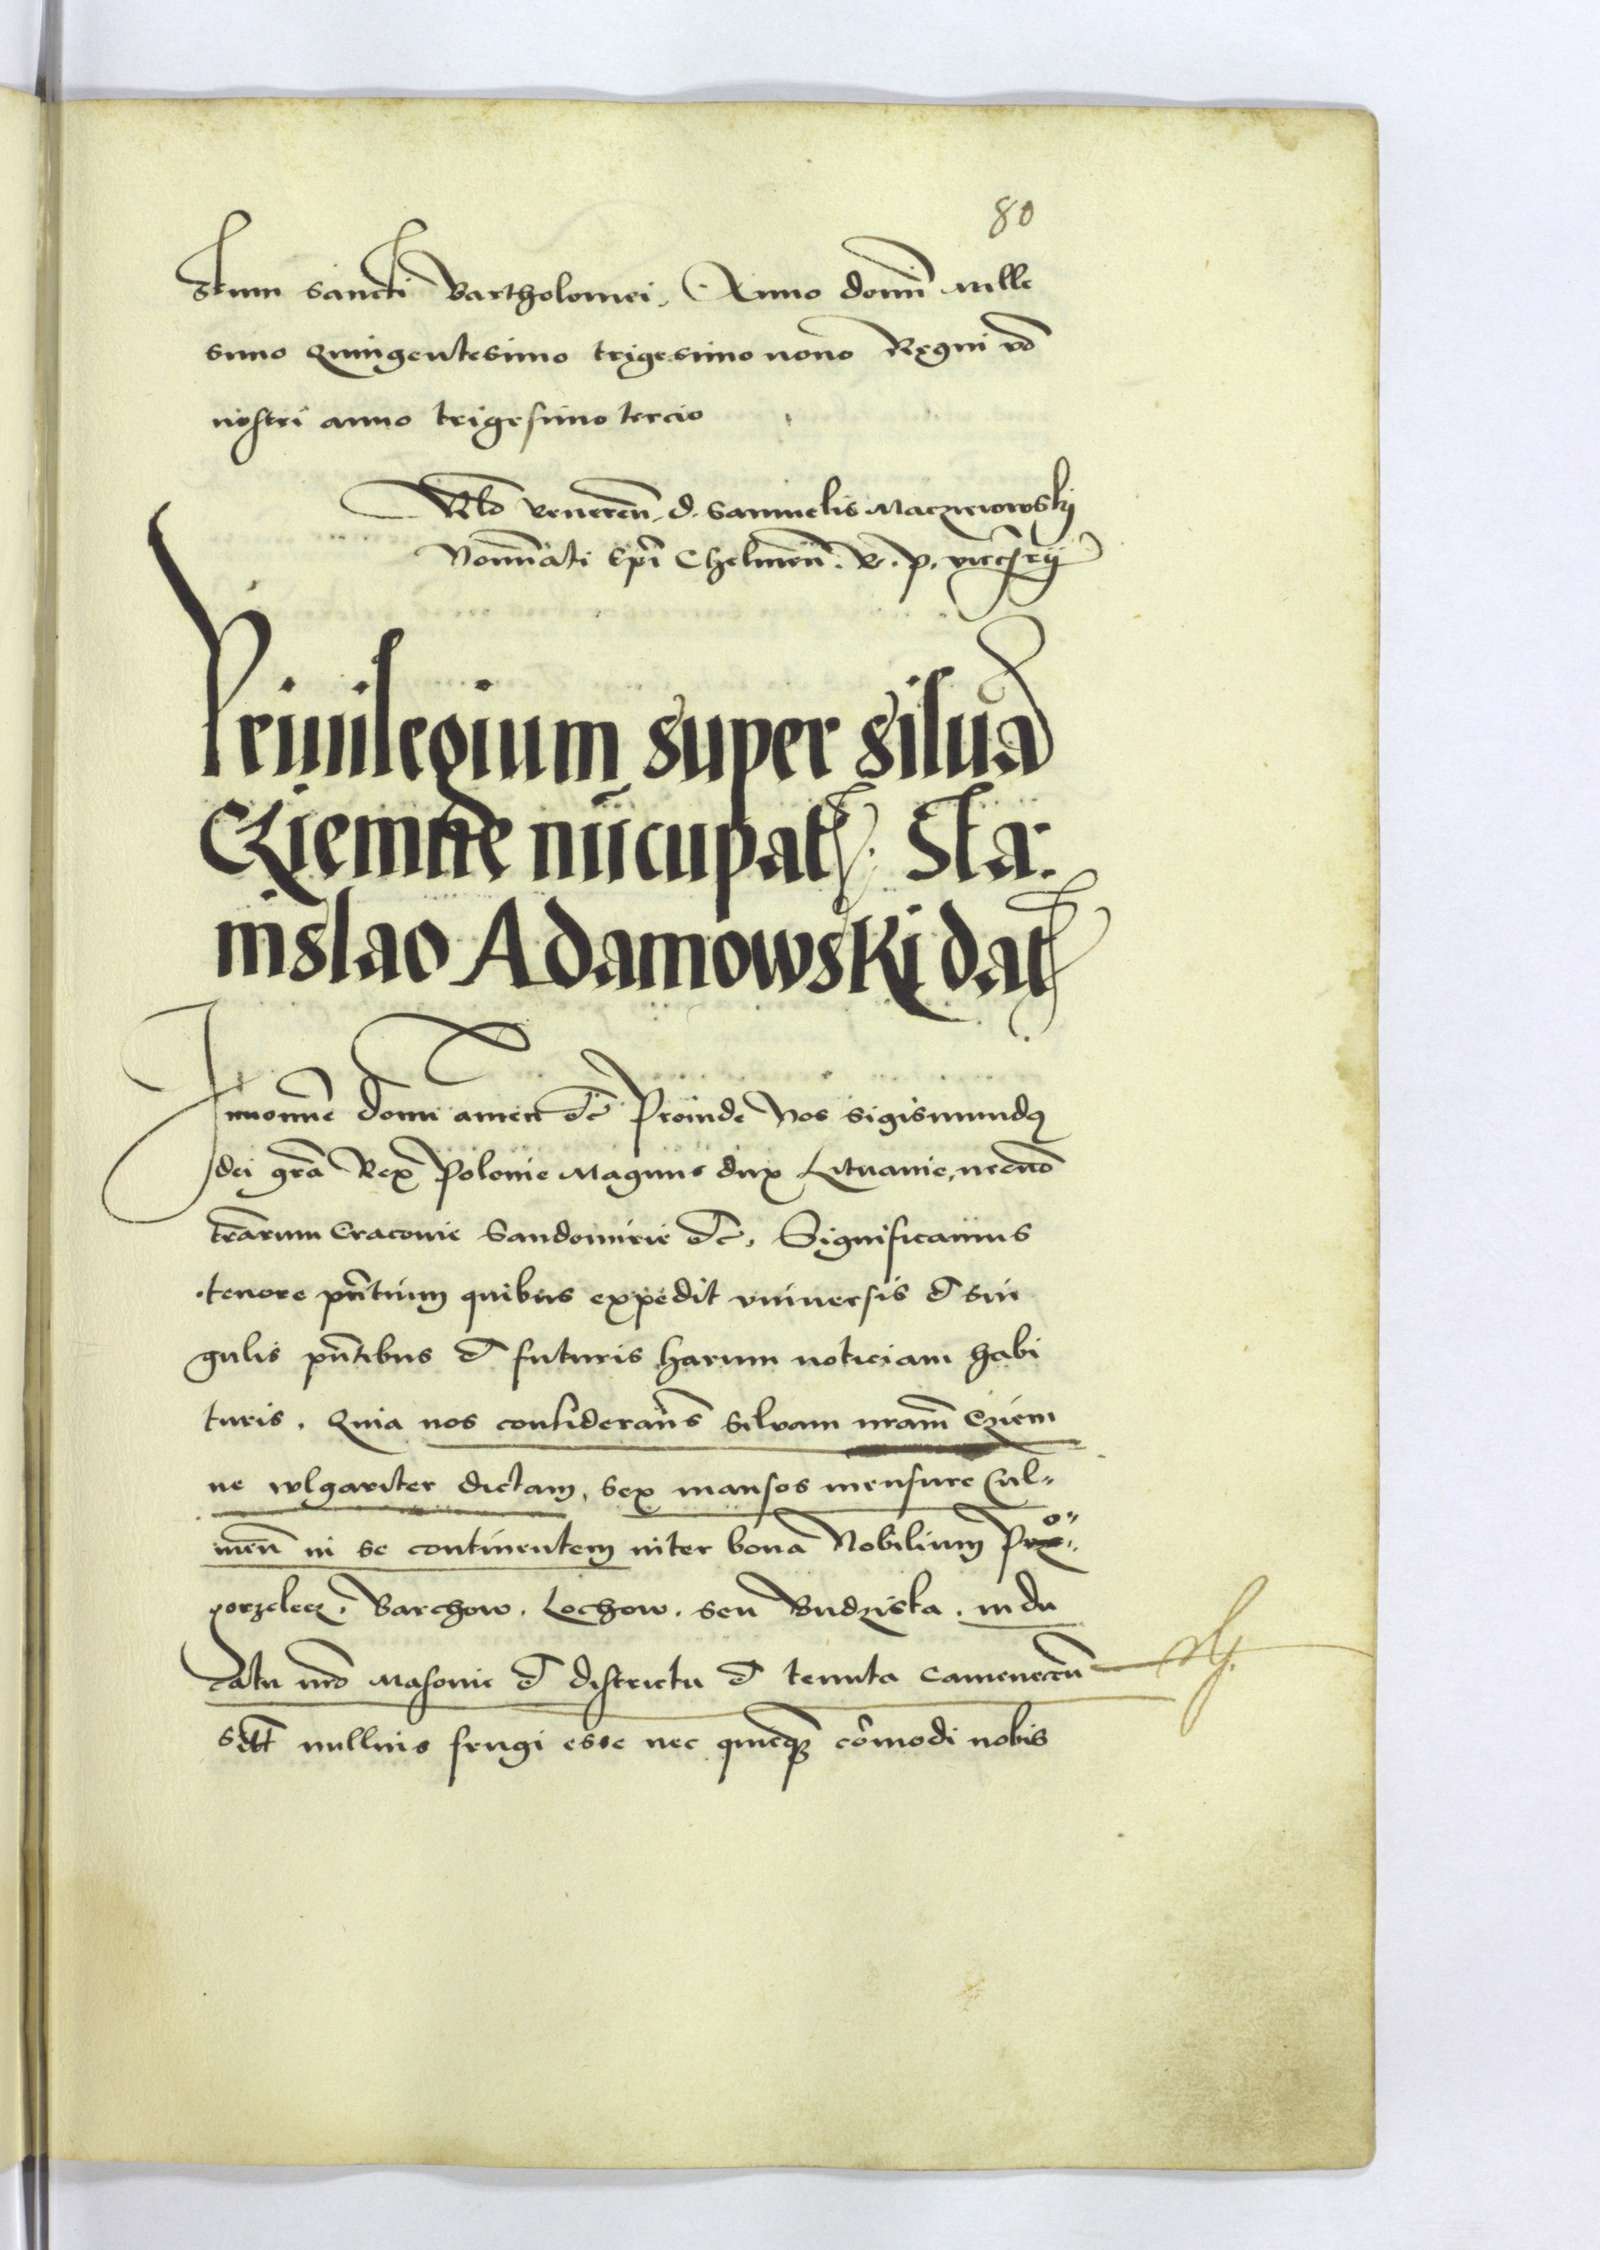 80
stum sancti Bartholomei. Anno domī mille
simo Quingentesimo trigesimo nono Regni vō
nostri anno trigesimo tercio
Rlō venereñ. d. Samuelis Maczieiowskÿ
Nomīati Epī Chelmeñ. R. P. vicecr̃ÿ
Priuilegium super silua
Cziemne nūcupat. Sta:
nislao Adamowski dat
In nomīe domi amen etc̄ Proinde Nos Sigismundꝯ
dei grā Rex Polonie Magnus dux Lituanie, necnō
tr̄arum Cracouie Sandomirie etc̄. Significamus
tenore pñtium quibus expedit vniuersis et sin
gulis pñtibus et futuris harum noticiam habi
turis. Quia nos considerañs siluam nram̄ Cziem
ne wlgariter dictam, sex mansos mensure Cul-
meñ in se continentem inter bona Nobilium Pro-
porzelecz. Barchow. Lochow. seu Budziska. in du
catu nrō Masouie et districtu et tenuta Cameneceñ
sitt̄ nullius frugi esse nec quicq̃ȝ cōmodi nobis